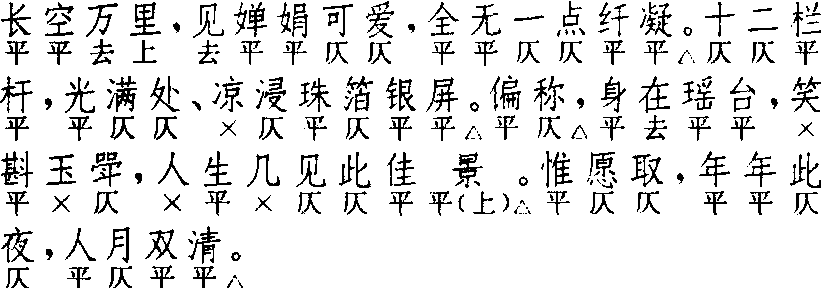 长空万里，见婵娟可爱，全无一点纤凝。十二栏
平平去上 去平平仄仄 平平仄仄平平△仄仄平
杆，光满处、凉浸珠箔银屏。偏称，身在瑶台，笑
平 平仄仄 ×仄平仄平平△平仄△平去平平 ×
斟玉斝，人生几见此佳景。惟愿取，年年此
平×仄 ×平×仄仄平平(上)△平仄仄 平平仄
夜，人月双清。
仄 平仄平平△